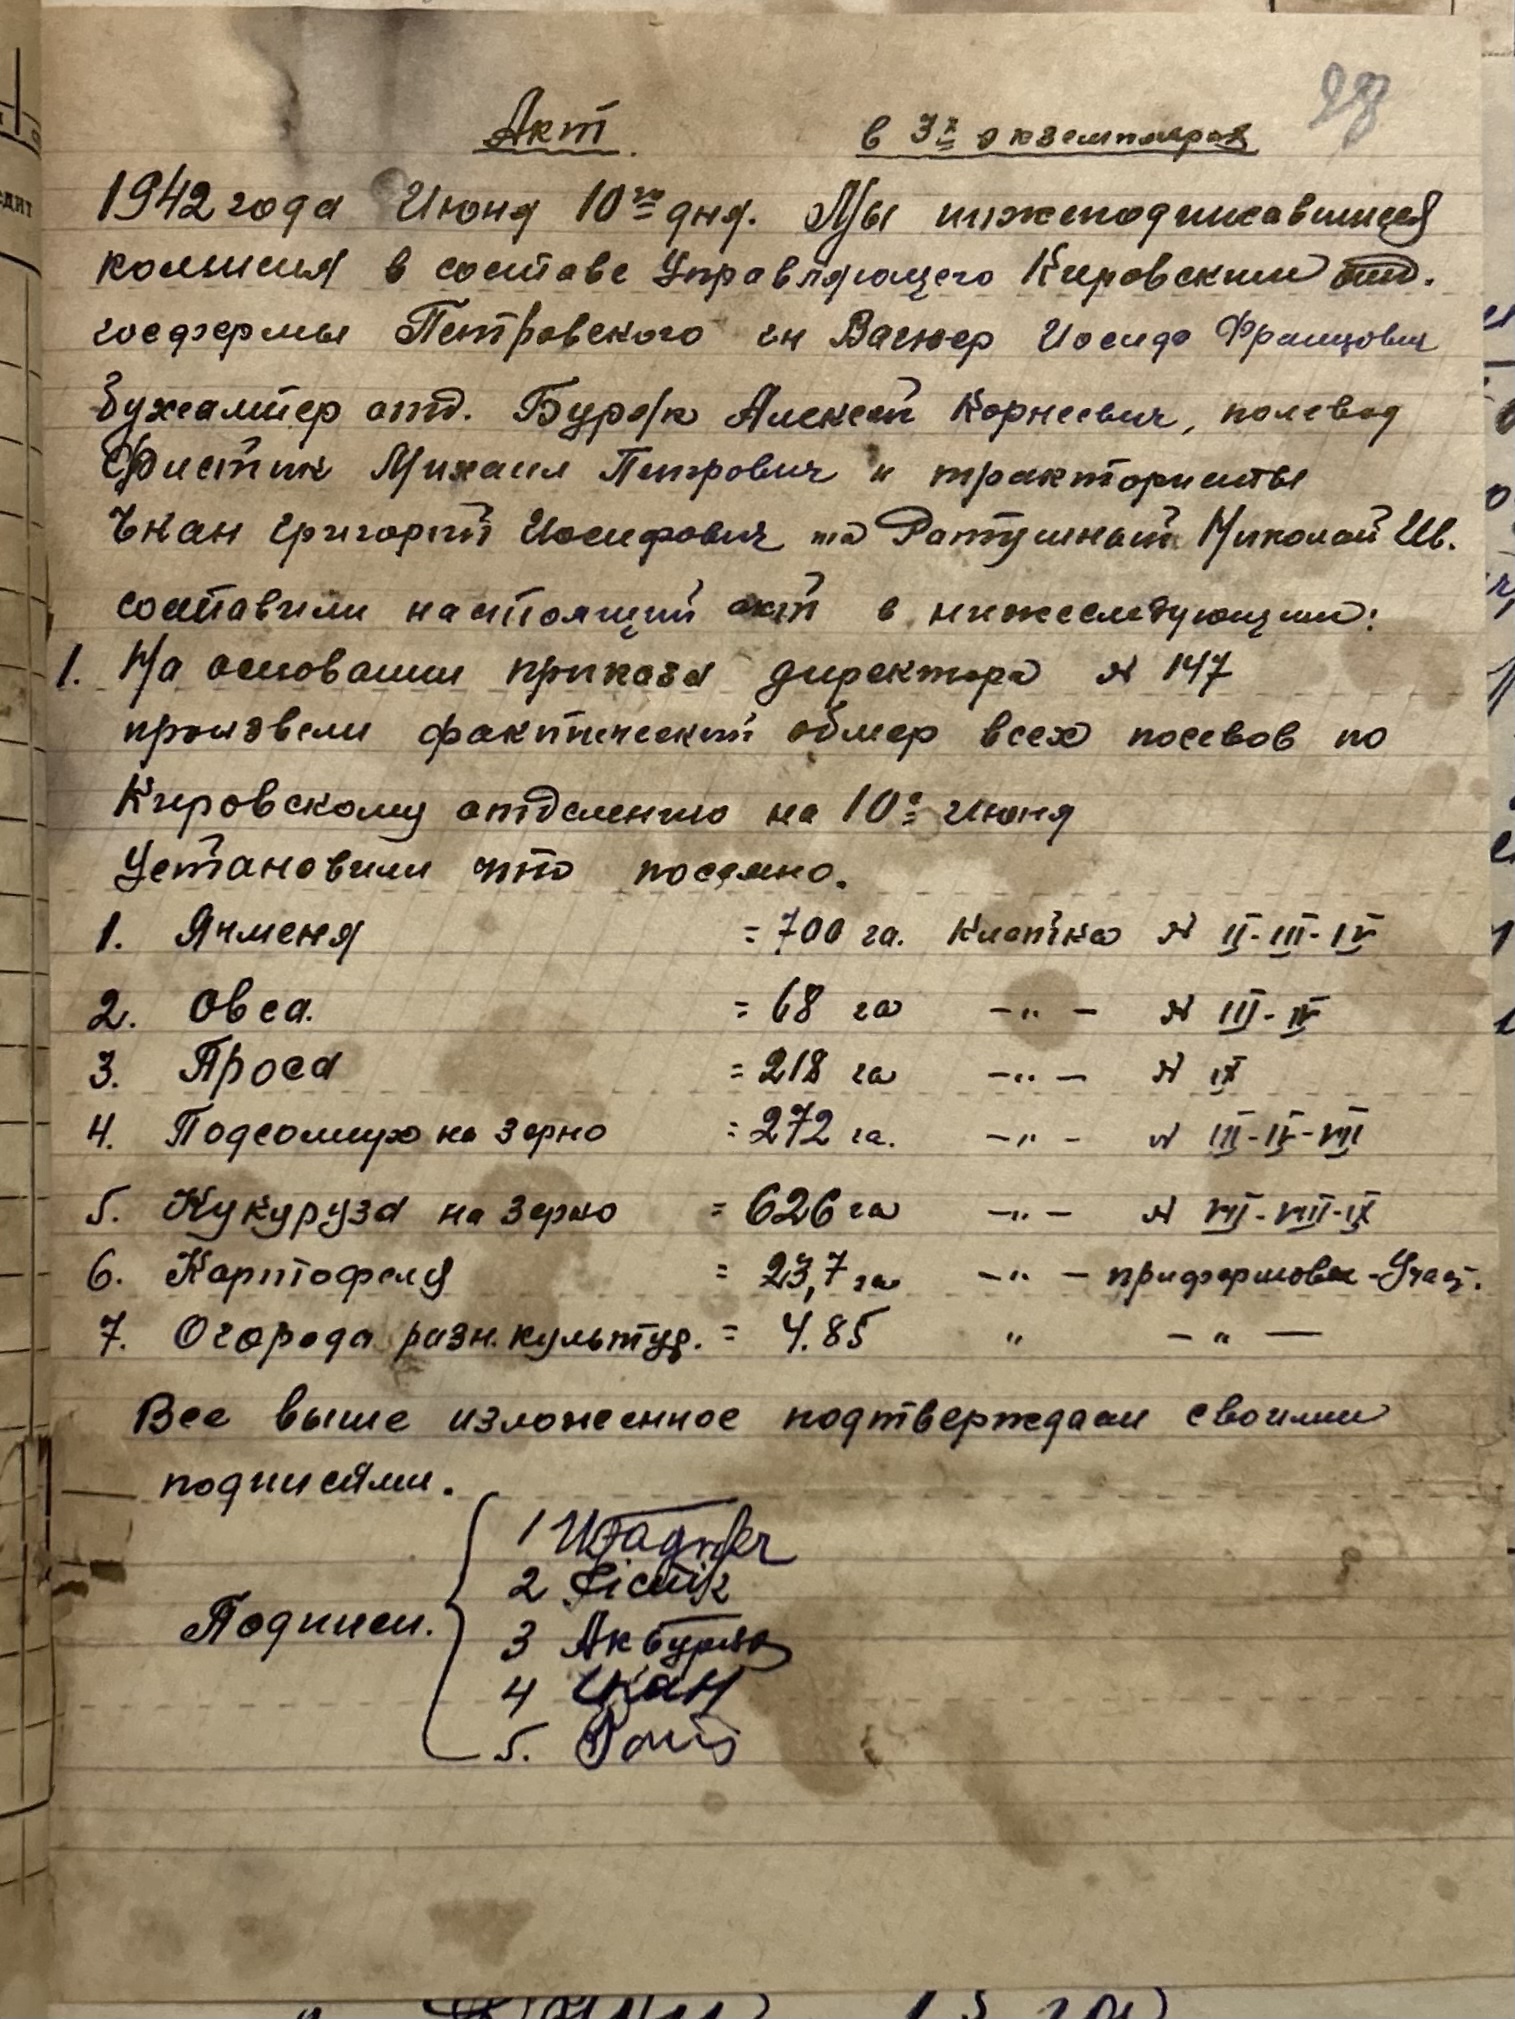 28
Акт. в 3х экземплярах
1942 года Июня 10го дня. Мы нижеподписавшиеся
комисия в составе Управляющего Кировским отд.
госфермы Петровского гн Вагнер Иосиф Францович
Бухгалтер отд. Буряк Алексей Корнеевич, полевод
Фистик Михаил Петрович и трактористы
Цкан Григорий Иосифович та Ратушный Миколай Ив.
составили настоящий акт в нижеследующим:
1. На основании приказа директора № 147
произвели фактический обмер всех посевов по
Кировскому отделению на 10е Июня
Установили что посеяно.
1. Ячменя = 700 га. Клетка № II-III-IV
2. Овса. = 68 га -"- № III-IV
3. Проса = 218 га -"- № IX
4. Подсолнух на зерно = 272 га. -"- № III-IV-VII
5. Кукуруза на зерно = 626 га -"- № VII-VIII-IX
6. Картофеля = 23,7 га -"- прифермовск-Участ.
7. Огорода разн. культур. = 4.85 " -"-
Все выше изложенное подтверждаем своими
подписями.
Подписи.
1 Wagner
2 Fistik
3 Ак Буряк
4 Цкан
5.